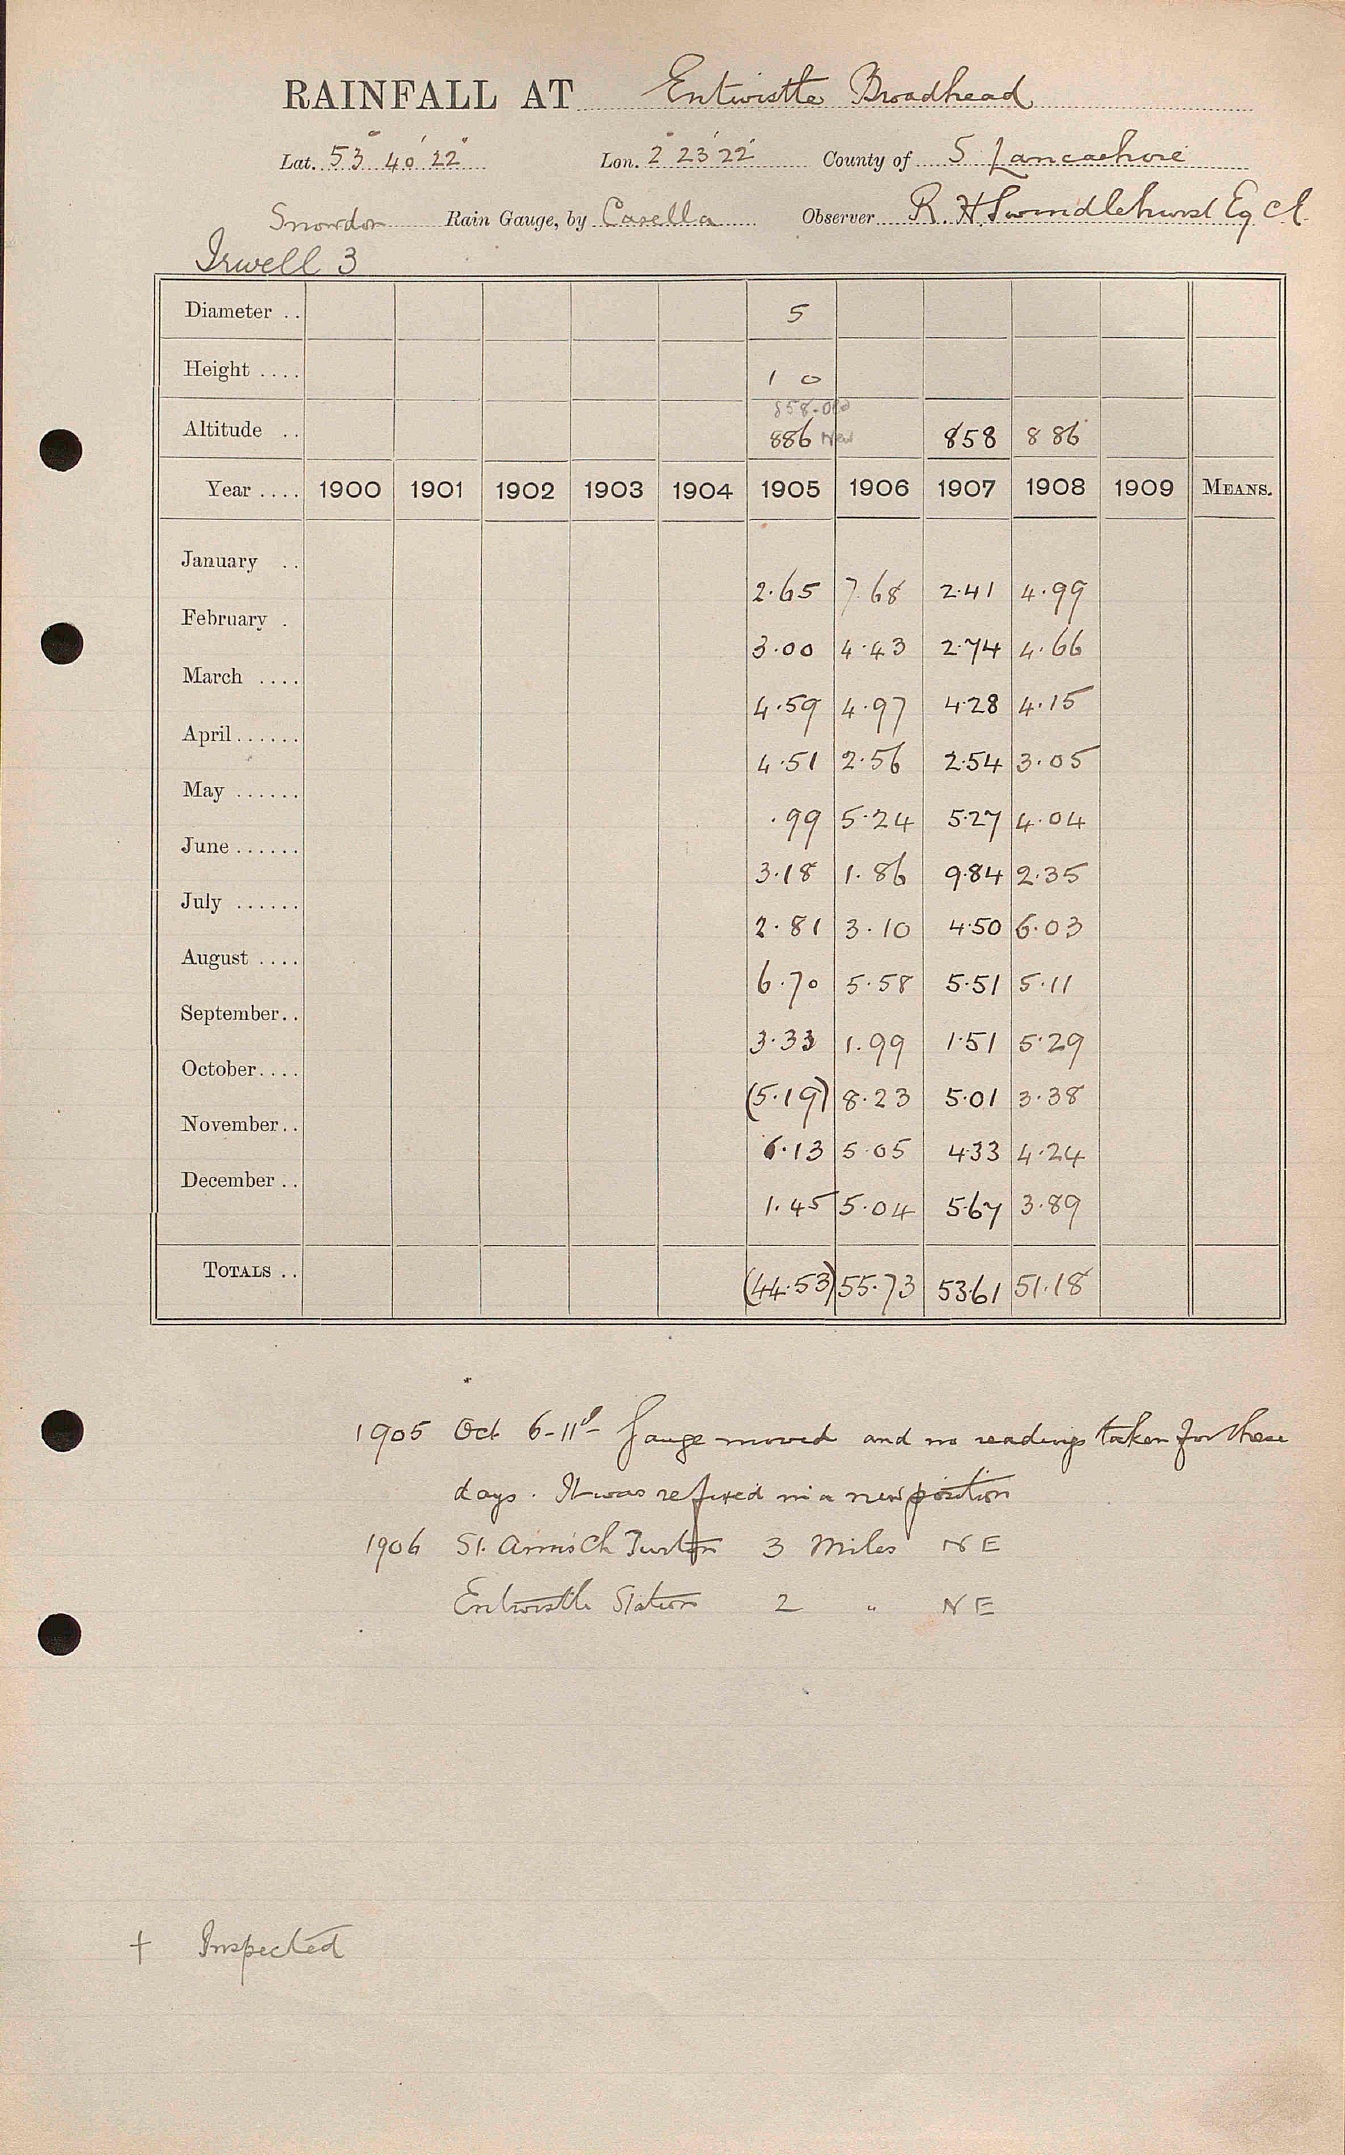 RAINFALL AT Entwistle Broadhead
Lat. 53° 40' 22" Lon. 2° 23' 22" County of S. Lancashire
Snowdon Rain Gauge, by Casella Observer R. H. Swindlehurst Esq C.E.
Irwell 3
Diameter .. 5
Height .... 1 0
858. Old
Altitude .. 886 New 858 886
Year .... 1900 1901 1902 1903 1904 1905 1906 1907 1908 1909 MEANS.
January .. 2.65 7.68 2.41 4.99
February . 3.00 4.43 2.74 4.66
March .... 4.59 4.97 4.28 4.15
April...... 4.51 2.56 2.54 3.05
May ...... .99 5.24 5.27 4.04
June ...... 3.18 1.86 9.84 2.35
July ...... 2.81 3.10 4.50 6.03
August .... 6.70 5.58 5.51 5.11
September.. 3.33 1.99 1.51 5.29
October.... (5.19) 8.23 5.01 3.38
November.. 6.13 5.05 4.33 4.24
December .. 1.45 5.04 5.67 3.89
TOTALS .. (44.53) 55.73 53.61 51.18
1905 Oct 6-11th Gauge moved and no readings taken for these
days. It was refixed in a new position
1906 St. Annes Ch Turton 3 Miles NE
Entwistle Station 2 " NE
† Inspected